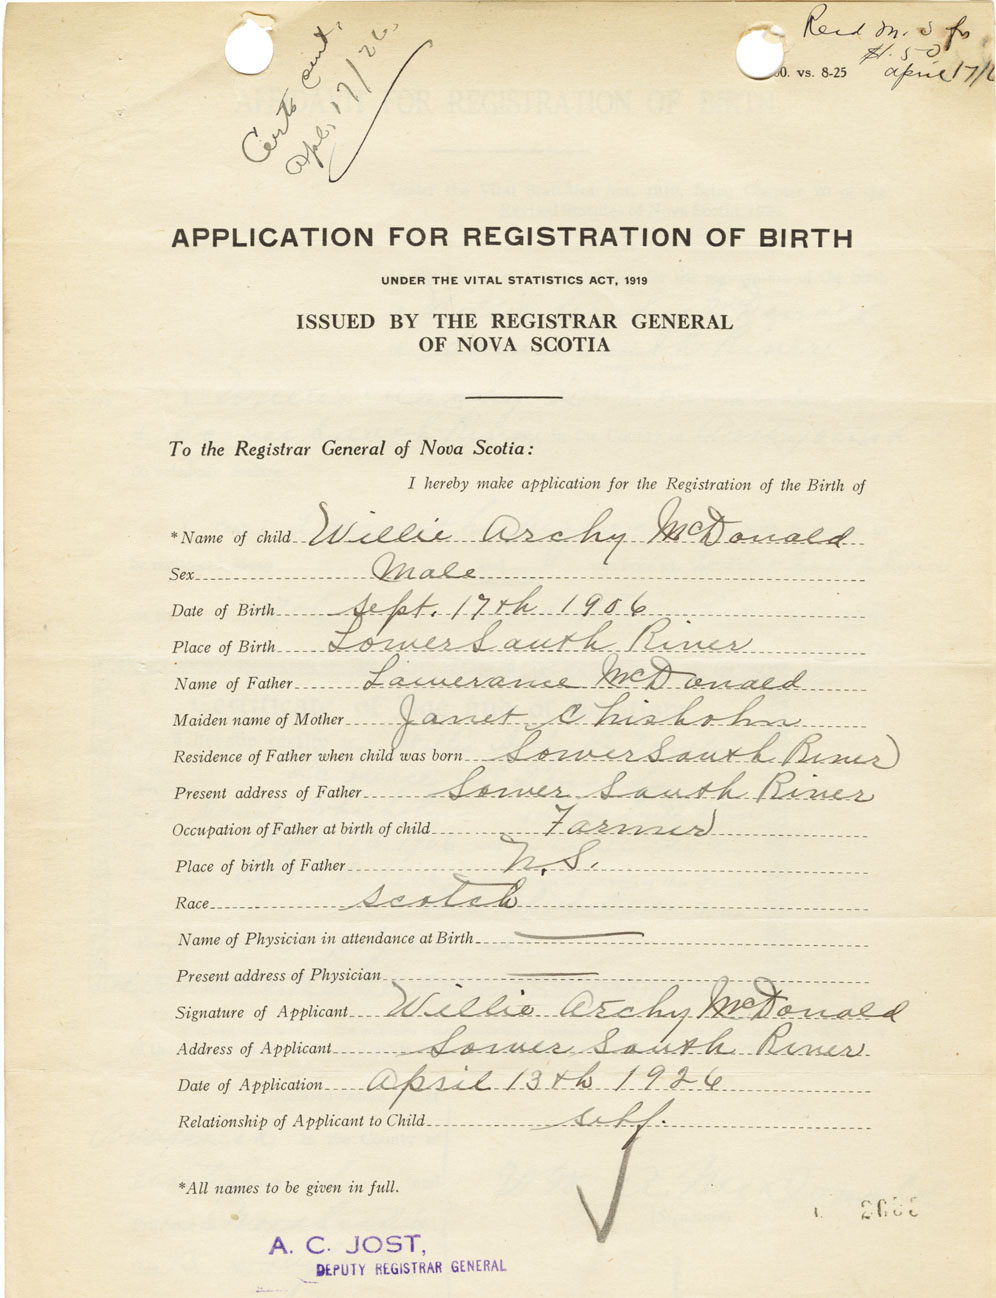 Certs Cert.
Apl. 17/26.
Recd M. S for
$1.50
00. vs. 8-25
April 17/
APPLICATION FOR REGISTRATION OF BIRTH
UNDER THE VITAL STATISTICS ACT, 1919
ISSUED BY THE REGISTRAR GENERAL
OF NOVA SCOTIA
To the Registrar General of Nova Scotia:
I hereby make application for the Registration of the Birth of
*Name of child Willie Archy McDonald
Sex Male
Date of Birth Sept. 17th 1906
Place of Birth Lower South River
Name of Father Lawerance McDonald
Maiden name of Mother Janet Chisholm
Residence of Father when child was born Lower South River
Present address of Father Lower South River
Occupation of Father at birth of child Farmer
Place of birth of Father N.S.
Race Scotch
Name of Physician in attendance at Birth
Present address of Physician
Signature of Applicant Willie Archy McDonald
Address of Applicant Lower South River
Date of Application April 13th 1926
Relationship of Applicant to Child self.
*All names to be given in full.
A. C. JOST,
DEPUTY REGISTRAR GENERAL